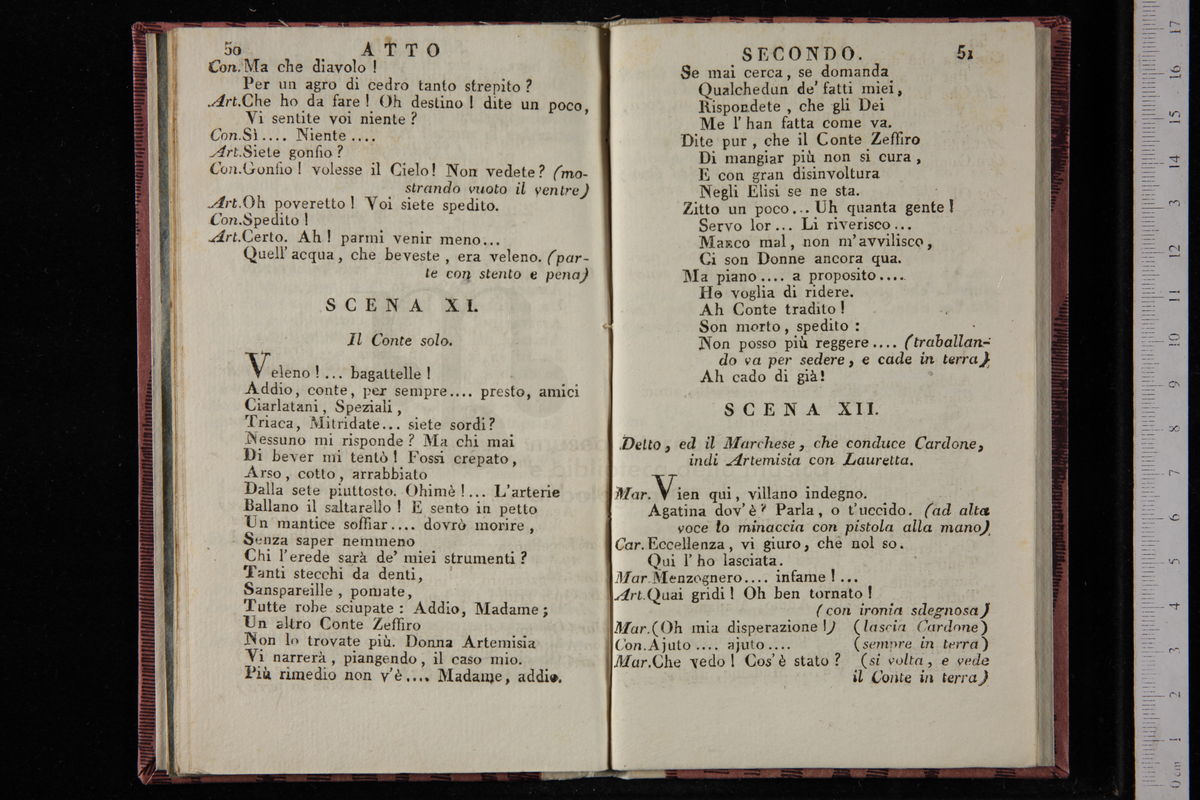 50 ATTO
Con. Ma che diavolo !
Per un agro di cedro tanto strepito ?
Art. Che ho da fare ! Oh destino ! dite un poco,
Vi sentite voi niente ?
Con. Sì .... Niente ....
Art. Siete gonfio ?
Con. Gonfio ! volesse il Cielo! Non vedete ? (mo-
strando vuoto il ventre)
Art. Oh poveretto ! Voi siete spedito.
Con. Spedito !
Art. Certo. Ah ! parmi venir meno...
Quell' acqua , che beveste , era veleno. (par-
te con stento e pena)
SCENA XI.
Il Conte solo.
Veleno ! ... bagattelle !
Addio, conte, per sempre.... presto, amici
Ciarlatani , Speziali ,
Triaca, Mitridate... siete sordi ?
Nessuno mi risponde ? Ma chi mai
Di bever mi tentò ! Fossi crepato ,
Arso , cotto , arrabbiato
Dalla sete piuttosto. Ohimè !... L'arterie
Ballano il saltarello ! E sento in petto
Un mantice soffiar.... dovrò morire ,
Senza saper nemmeno
Chi l'erede sarà de' miei strumenti ?
Tanti stecchi da denti,
Sanspareille , pomate,
Tutte robe sciupate : Addio, Madame ;
Un altro Conte Zeffiro
Non lo trovate più. Donna Artemisia
Vi narrerà , piangendo , il caso mio.
Più rimedio non v'è.... Madame, addio.
SECONDO. 51
Se mai cerca, se domanda
Qualchedun de' fatti miei,
Rispondete , che gli Dei
Me l' han fatta come va.
Dite pur , che il Conte Zeffiro
Di mangiar più non si cura ,
E con gran disinvoltura
Negli Elisi se ne sta.
Zitto un poco... Uh quanta gente !
Servo lor ... Li riverisco ...
Manco mal, non m'avvilisco,
Ci son Donne ancora qua.
Ma piano .... a proposito ....
Ho voglia di ridere.
Ah Conte tradito !
Son morto , spedito :
Non posso più reggere .... (traballan-
do va per sedere, e cade in terra)
Ah cado di già!
SCENA XII.
Detto, ed il Marchese, che conduce Cardone,
indi Artemisia con Lauretta.
Mar. Vien qui, villano indegno.
Agatina dov'è? Parla, o t'uccido. (ad alta
voce lo minaccia con pistola alla mano)
Car. Eccellenza, vi giuro, che nol so.
Qui l' ho lasciata.
Mar. Menzognero.... infame ! ...
Art. Quai gridi ! Oh ben tornato !
(con ironia sdegnosa)
Mar. (Oh mia disperazione !) (lascia Cardone)
Con. Ajuto .... ajuto .... (sempre in terra)
Mar. Che vedo ! Cos' è stato ? (si volta, e vede
il Conte in terra)
0 cm 1 2 3 4 5 6 7 8 9 10 11 12 13 14 15 16 17